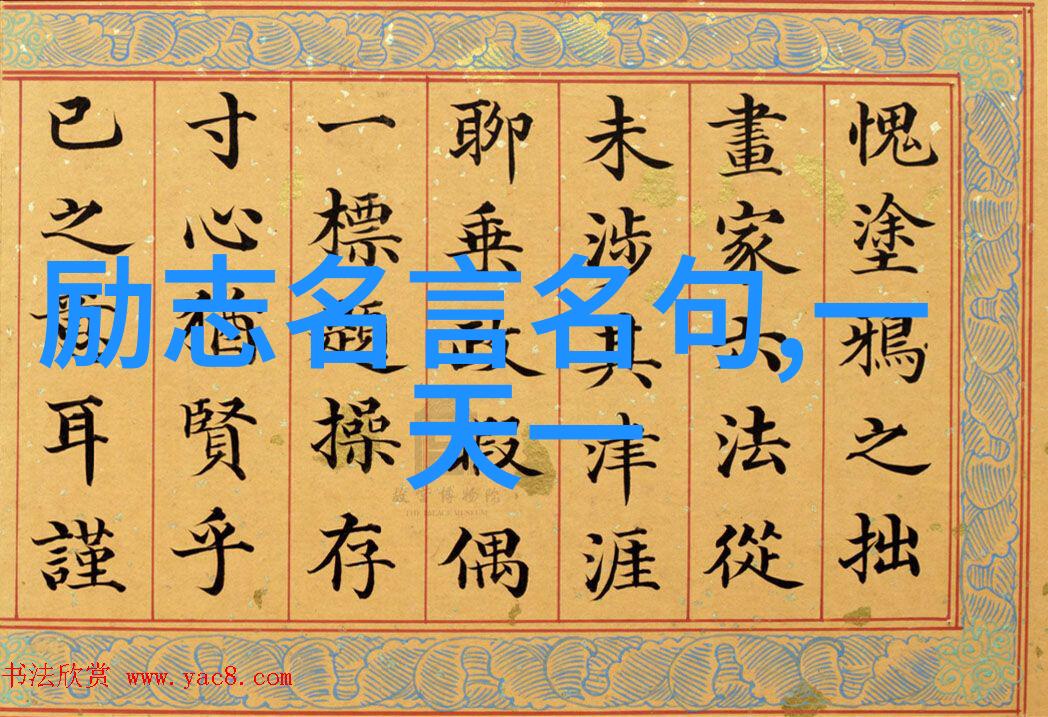 励志名言名句,一
天一
愧塗鴉之拙
畫家六法從
未涉其津涯
聊乘政暇偶
一標題操存
寸心猶賢乎
已之耳謹
故宫博物院
THE PALACE MUSEUM
书法欣赏 www.yac8.com